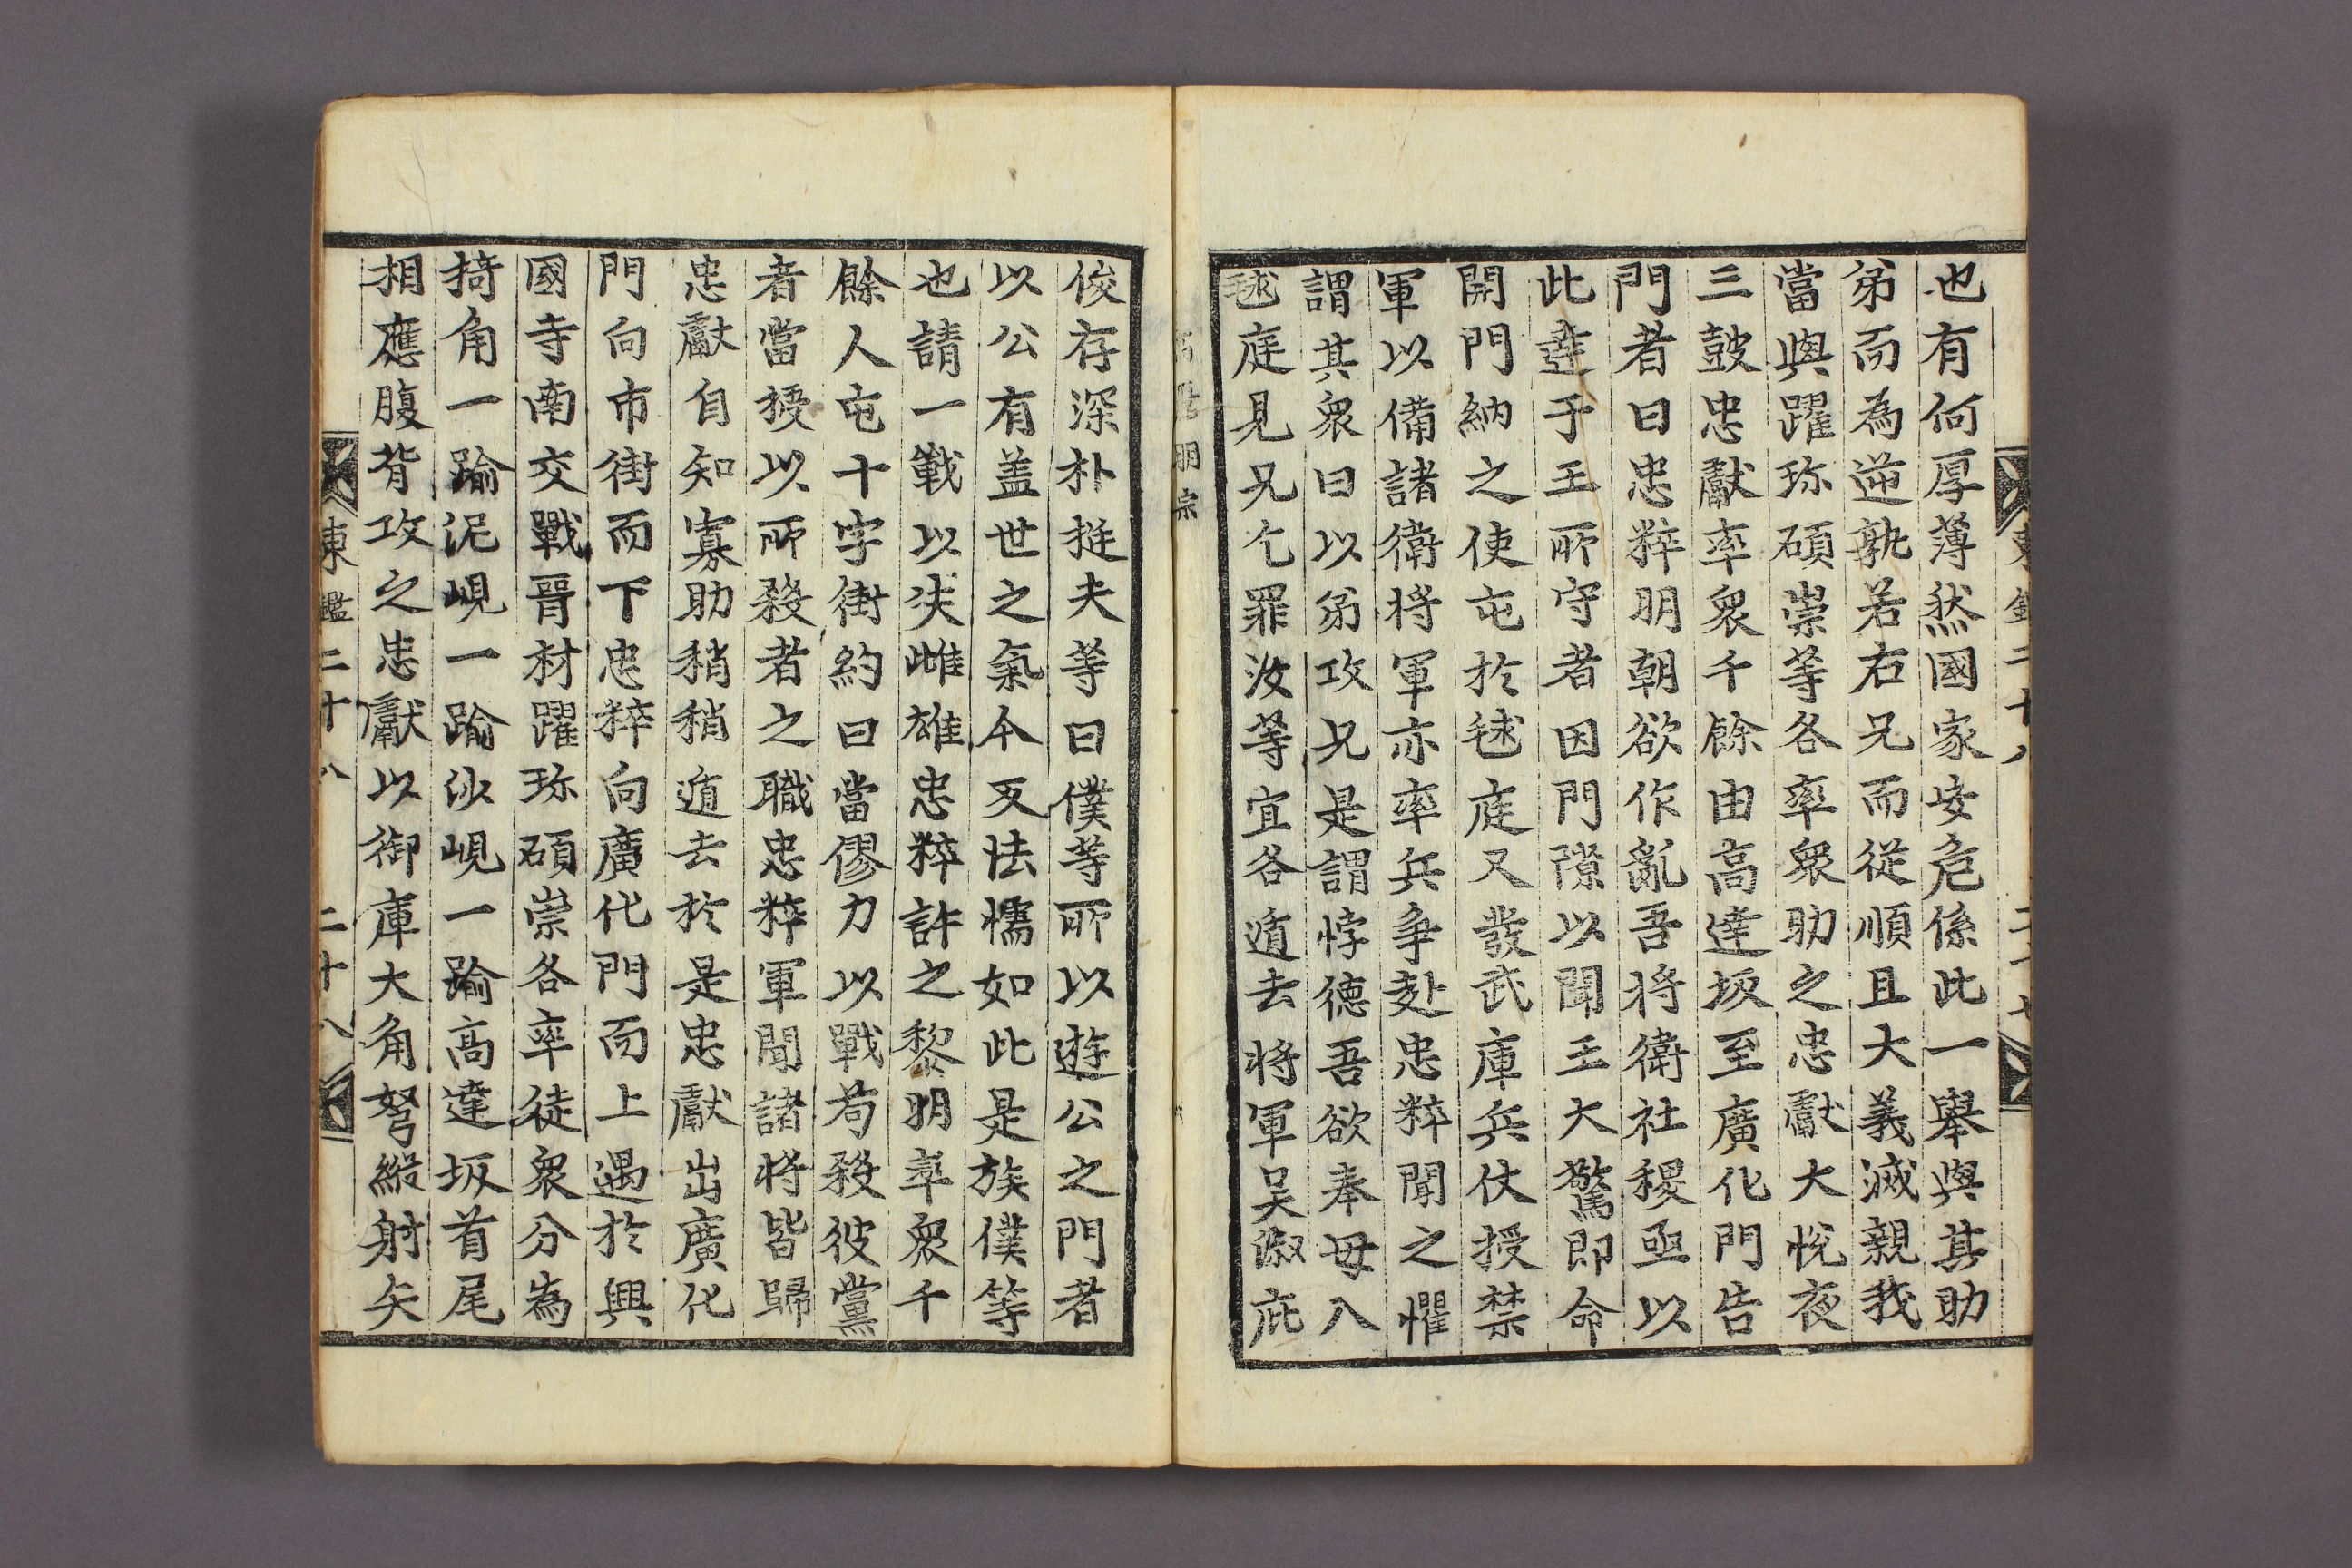 也有何厚薄然國家安危係此一舉與其助
弟而為逆孰若右兄而從順且大義滅親我
當與躍珎碩崇等各率衆助之忠獻大悅夜
三鼓忠獻率衆千餘由高達坂至廣化門告
門者曰忠粹明朝欲作亂吾將衛社稷亟以
此達于王所守者因門隙以聞王大驚即命
開門納之使屯於毬庭又發武庫兵仗授禁
軍以備諸衛將軍亦率兵爭赴忠粹聞之懼
謂其衆曰以弟攻兄是謂悖德吾欲奉母入
毬庭見兄乞罪汝等宜各遁去將軍吳淑庇
明宗
俊存深朴挺夫等曰僕等所以遊公之門者
以公有盖世之氣今反怯懦如此是族僕等
也請一戰以决雌雄忠粹許之黎明率衆千
餘人屯十字街約曰當僇力以戰苟殺彼黨
者當授以所殺者之職忠粹軍聞諸將皆歸
忠獻自知寡助稍稍遁去於是忠獻出廣化
門向市街而下忠粹向廣化門而上遇於興
國寺南交戰晉材躍珎碩崇各率徒衆分為
掎角一踰泥峴一踰沙峴一踰高達坂首尾
相應腹背攻之忠獻以御庫大角弩縱射矢
東鑑二十八 二十八